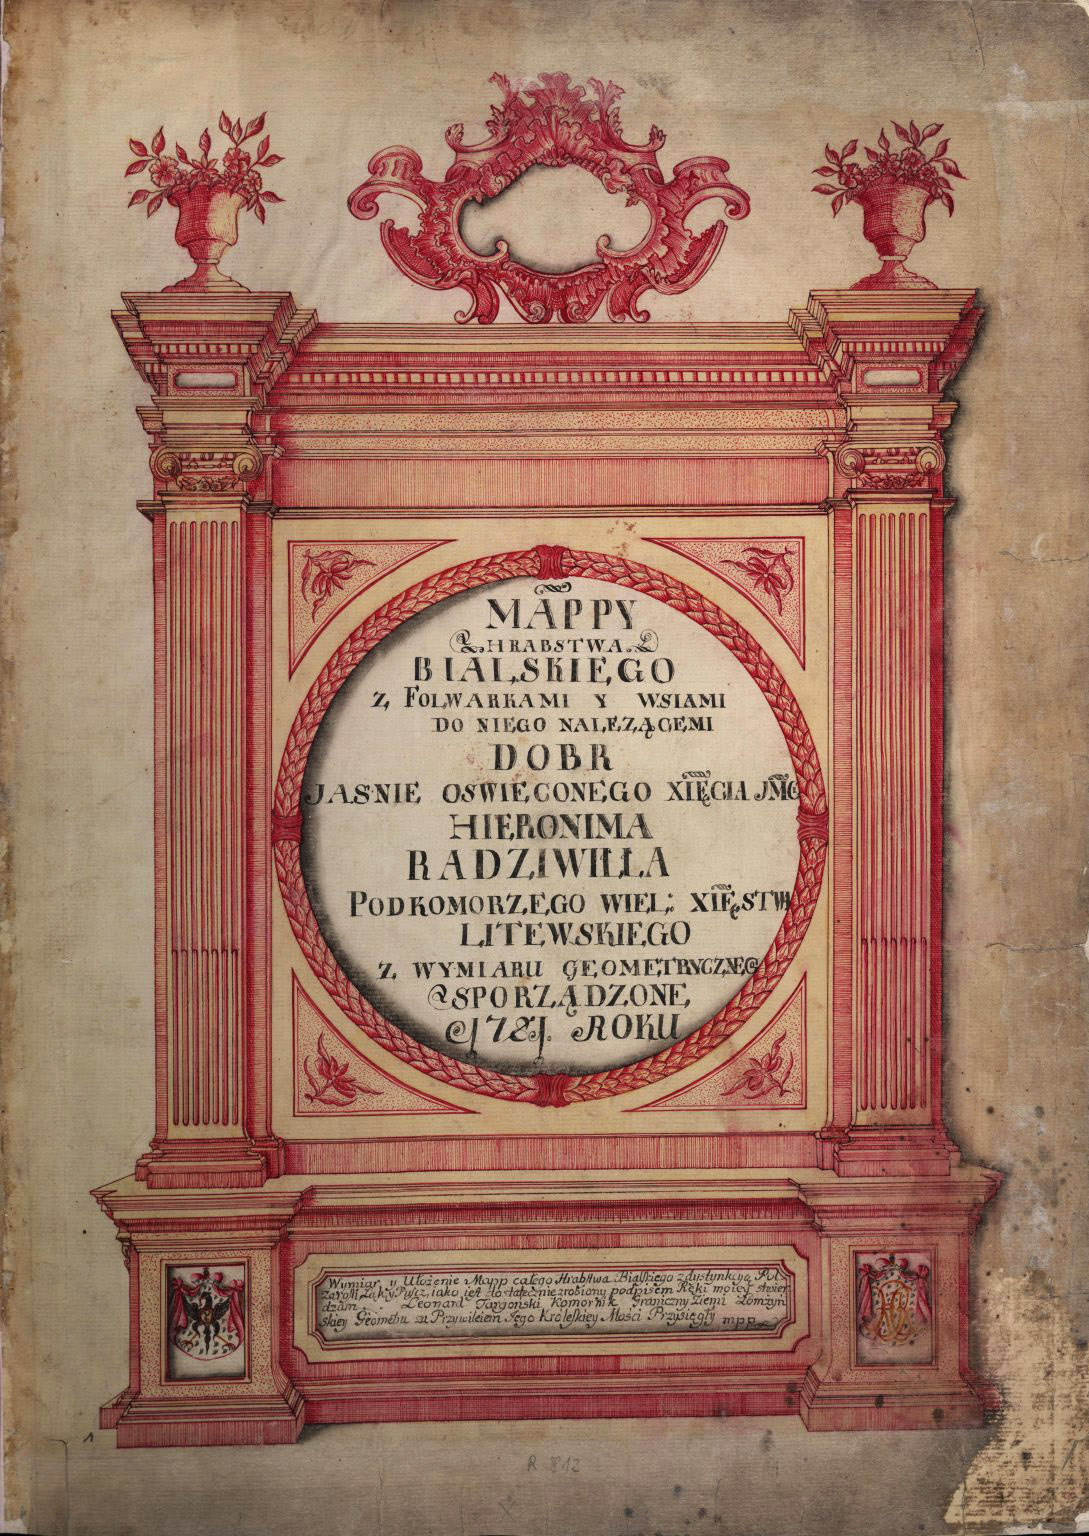 MAPPY
HRABSTWA
BIALSKIEGO
Z FOLWARKAMI Y WSIAMI
DO NIEGO NALEZĄCEMI
DOBR
JASNIE OSWIECONEGO XIĘCIA JMC
HIERONIMA
RADZIWIŁŁA
PODKOMORZEGO WIEL: XIĘSTW
LITEWSKIEGO
Z WYMIARU GEOMETRYCZNEG
SPORZĄDZONE
1781. ROKU
Wymiar y Ułożenie Mapp całego Hrabstwa Bialskiego z dystynkcyą Pol
Zarośli Łąk y Puscz, iako iest dostatecznie zrobiony podpisem Ręki moiey stwier
dzam. Leonard Targonski Komornik Graniczny Ziemi Łomzyń
skiey Geometra za Przywileiem Jego Krolewskiey Mości Przysięgły mpp
1
R 812